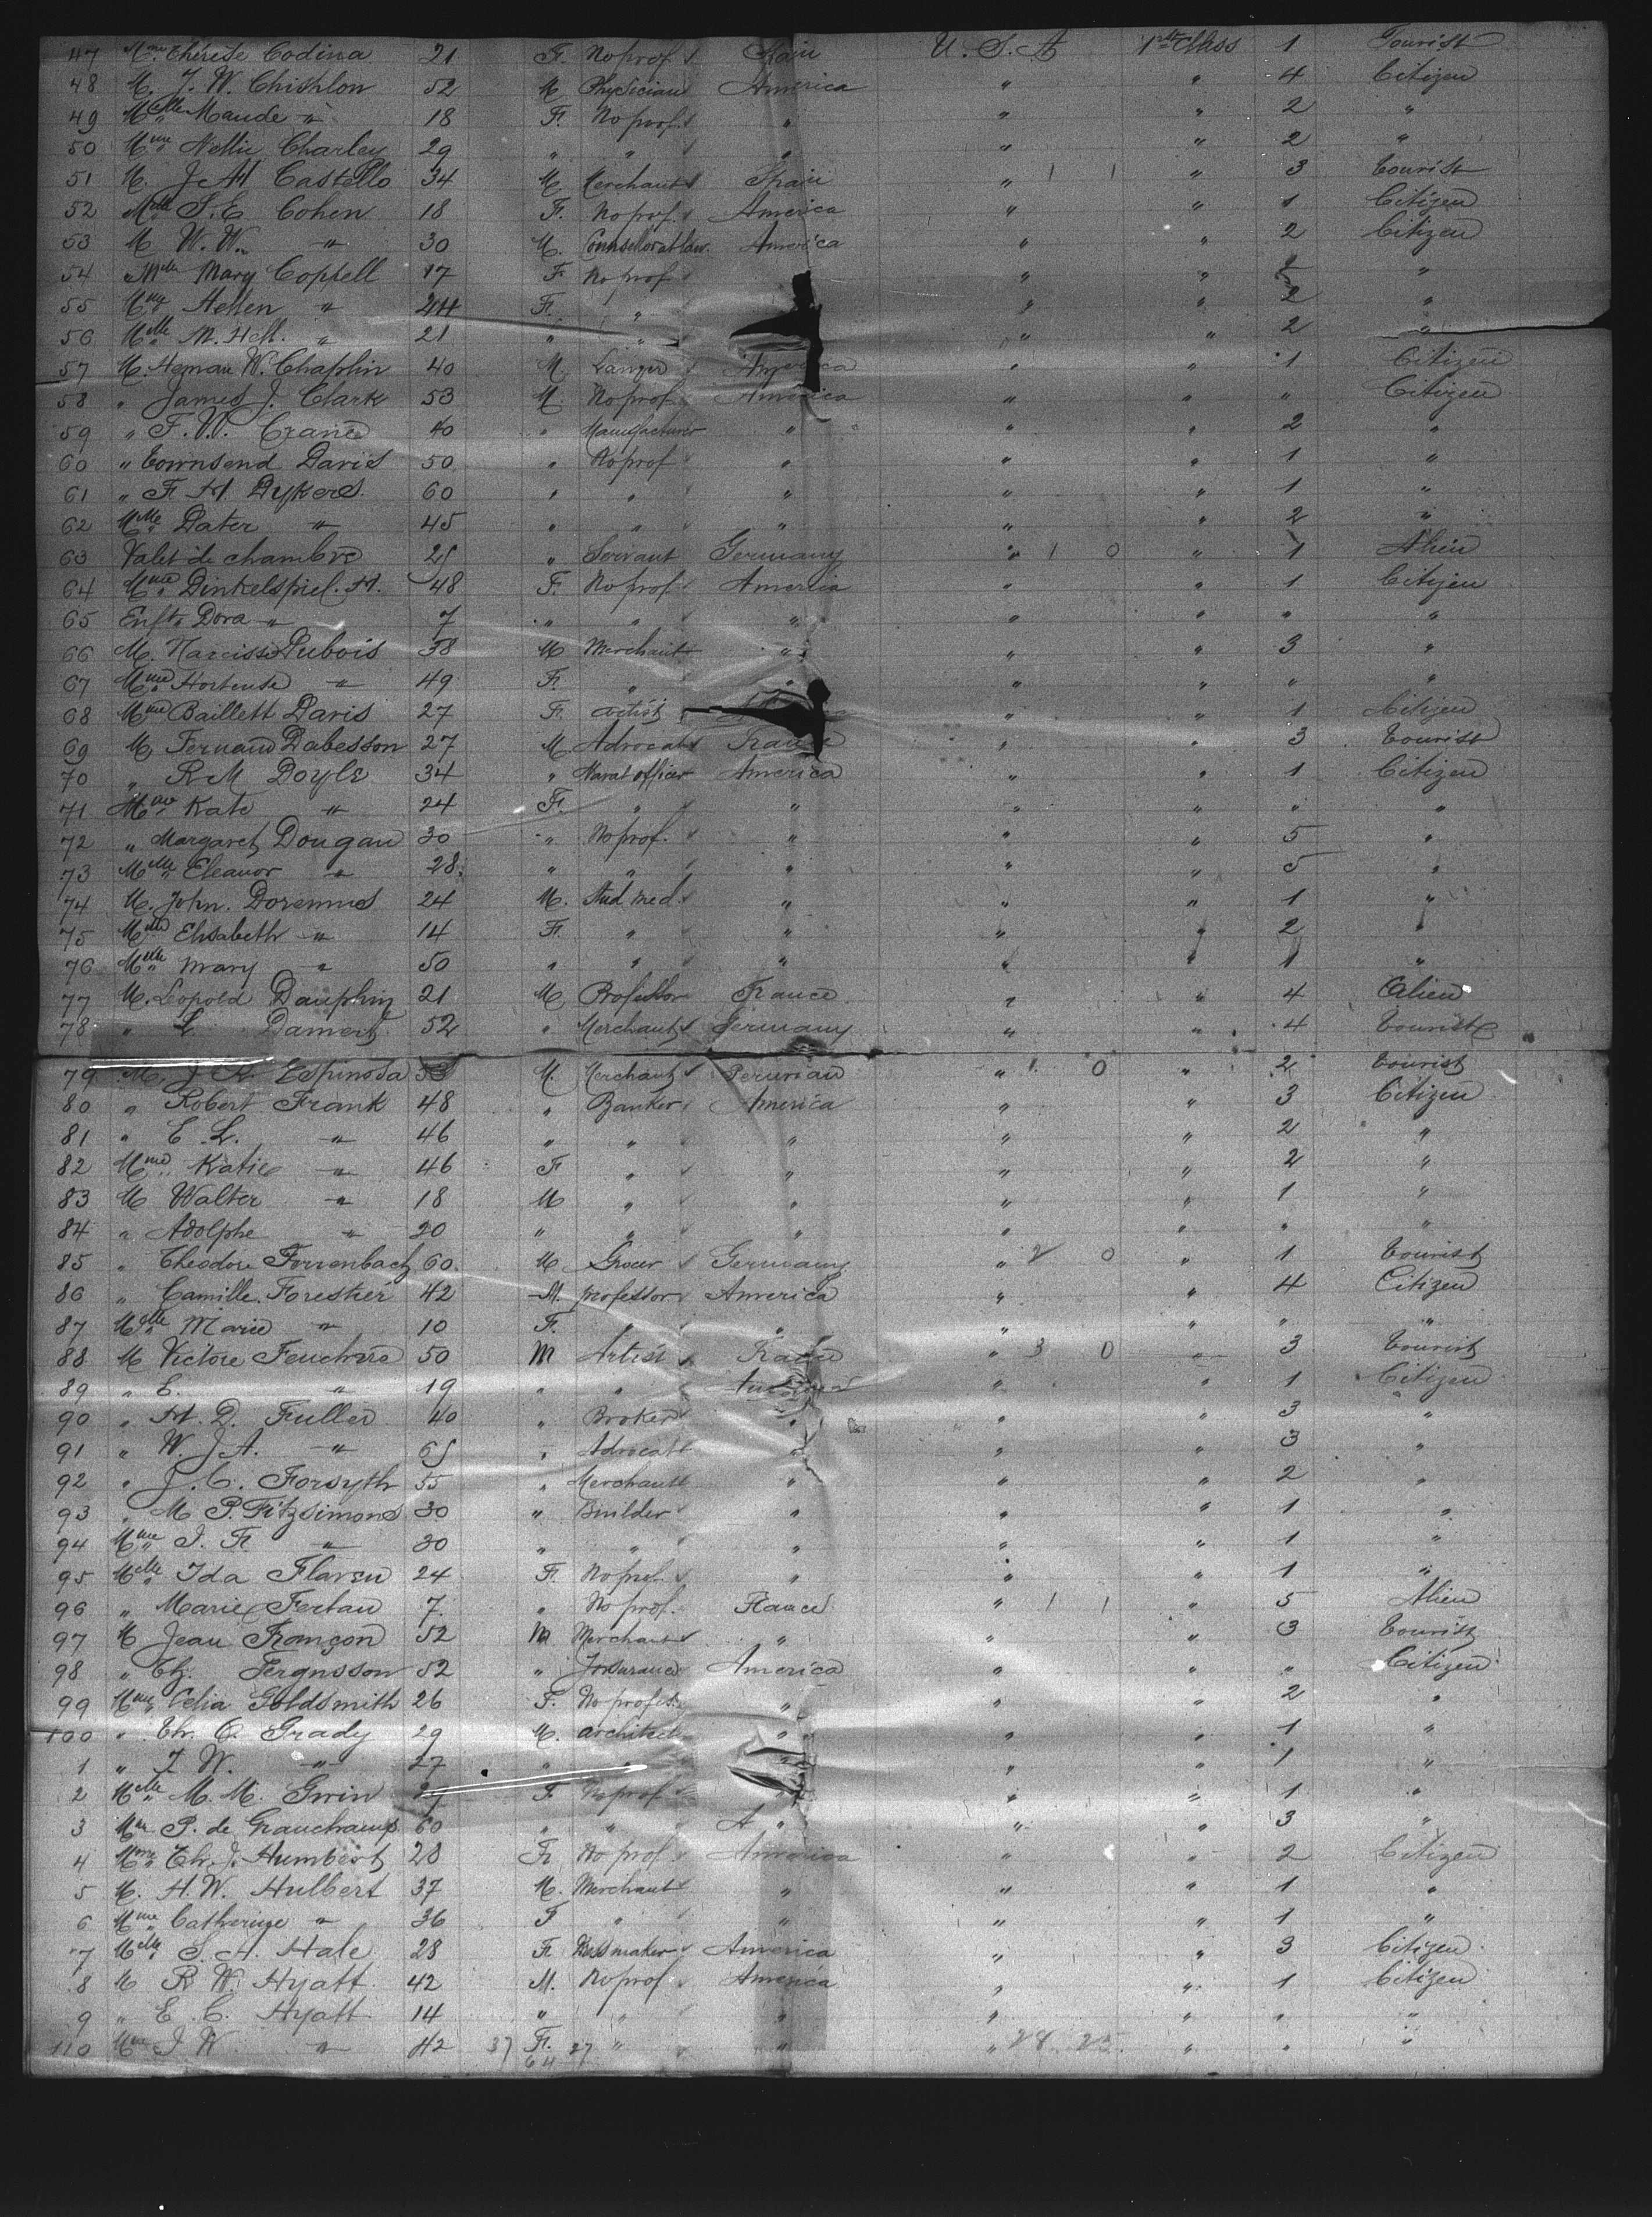 47 Mme Thérèse Codina 21 F. No prof. Spain U.S.A 1st Class 1 Tourist
48 M. J. W. Chishlon 52 M Physician America " " 4 Citizen
49 Melle Maude " 18 F. No prof. " " " 2 "
50 Mme Nellie Charley 29 " " " " " 2 "
51 M. J. H Castello 34 M Merchant Spain " 1 1 " 3 Tourist
52 Melle S. E. Cohen 18 F. No prof. America " " 1 Citizen
53 M W. W. " 30 M. Counselor at law America " " 2 Citizen
54 Melle Mary Coppell 17 F No prof " " "
55 Mme Hellen " F. " " " 2 "
56 Melle M. Hell. " 21 " " " " 2 "
57 M. Heman W. Chaplin 40 M. America " " 1 Citizen
58 " James J. Clark 53 M. No prof. America " " " Citizen
59 " F. W. Crane 40 " Manufacturer " " " 2 "
60 " Townsend Davis 50 " No prof " " " 1 "
61 " F. H. Dykers 60 " " " " " 1 "
62 Dater " 45 " " " " " 2 "
63 Valet de chambre 25 " Servant Germany " 1 0 " 1 Alien
64 Mme Dinkelspiel. H. 48 F. No prof America " " 1 Citizen
65 Enft Dora " 7 " " " " " " "
66 M. Narcisse Dubois 38 M Merchant " " " 3 "
67 Mme Hortense " 49 F. " " " " " "
68 Mme Baillett Davis 27 F. Artist " " 1 Citizen
69 M. Fernand Dabesson 27 M Advocat France " " 3 Tourist
70 " R M Doyle 34 " Naval officer America " " 1 Citizen
71 Mme Kate " 24 F. " " " " " "
72 " Margaret Dougan 30 " No prof. " " " 5 "
73 Melle Eleanor " 28 " " " " " 5 "
74 M. John. Doremus 24 M. Stud med. " " " 1 "
75 Melle Elisabeth " 14 F. " " " " 2 "
76 Melle Mary " 50 " " " " " 1 "
77 M. Leopold Dauphin 21 M Professor France " " 4 Alien
78 " L. Damert 52 " Merchant Germany " " 4 Tourist
79 M. J. Espinosa M. Merchant Peruvian " 1 0 " 2 Tourist
80 " Robert Frank 48 " Banker America " " 3 Citizen
81 " E. L. " 46 " " " " " 2 "
82 Mme Katie " 46 F " " " " 2 "
83 M Walter " 18 M " " " " 1 "
84 " Adolphe " 20 " " " " " " "
85 " Theodore Forrenbach 60 M Grocer Germany " 2 0 " 1 Tourist
86 " Camille Forestier 42 M. Professor America " " 4 Citizen
87 Melle Marie " 10 F. " " " " " "
88 M Victore Feuchère 50 M Artist France " 3 0 " 3 Tourist
89 " E. " 19 " " " " 1 Citizen
90 " H. D. Fuller 40 " Broker " " " 3 "
91 " W. J. A. " 65 " Advocat " " " 3 "
92 " J. C. Forsyth 55 " Merchant " " " 2 "
93 " M P. Fitzsimons 30 " Builder " " " 1 "
94 Mme J. F. " 30 " " " " " 1 "
95 Melle Ida Flaren 24 F. No prof. " " " 1 "
96 " Marie Fertau 7. " No prof. France " 1 1 " 5 Alien
97 M Jean Françon 52 M Merchant " " " 3 Tourist
98 " Ch. Fergnsson 52 " Insurance America " " " Citizen
99 Mme Celia Goldsmith 26 F. No profes. " " " 2 "
100 " Th. O. Grady 29 M. Architect " " " 1 "
1 " J. W. " 27 " " " " 1 "
2 Melle M. M. Gwin F No prof " " 1 "
3 Mme P. de Grauchamp 60 " " A " " " 3 "
4 Mme Th. J. Humbert 28 F. No prof. America " " 2 Citizen
5 M. H. W. Hulbert 37 M. Merchant " " " 1 "
6 Mme Catherine " 36 F " " " " 1 "
7 Melle S. H. Hale 28 F. Dressmaker America " " 3 Citizen
8 M R. W. Hyatt 42 M. No prof. America " " 1 Citizen
9 " E. C. Hyatt 14 " " " " " " "
110 Mme J. W " 42 37 F. 27 " " " 28 25 " " "
64